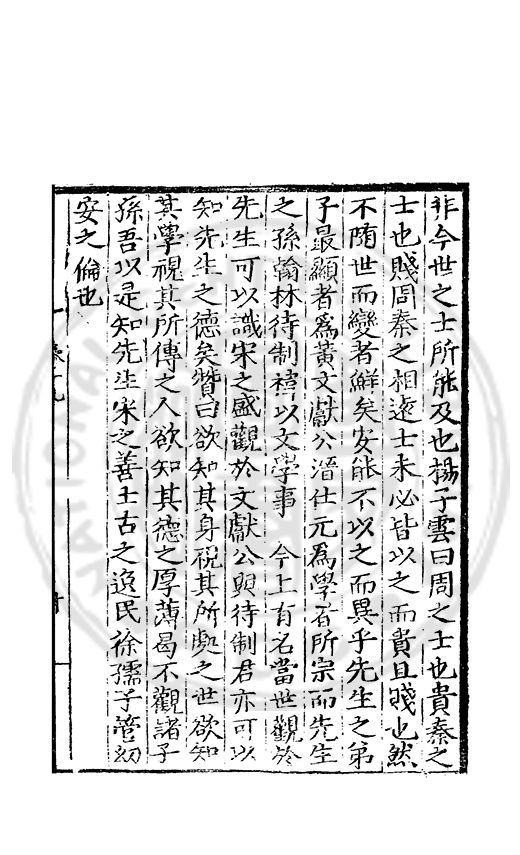 非今世之士所能及也楊子雲曰周之士也貴秦之
士也賤周秦之相遠士未必皆以之而貴且賤也然
不随世而變者鮮矣安能不以之而異乎先生之弟
子最顯者爲黄文獻公溍仕元爲學者所宗而先生
之孫翰林待制禕以文學事 今上有名當世觀於
先生可以識宋之盛觀於文獻公與待制君亦可以
知先生之德矣贊曰欲知其身視其所處之世欲知
其學視其所傳之人欲知其德之厚薄曷不觀諸子
孫吾以是知先生宋之善士古之逸民徐孺子管幼
安之倫也